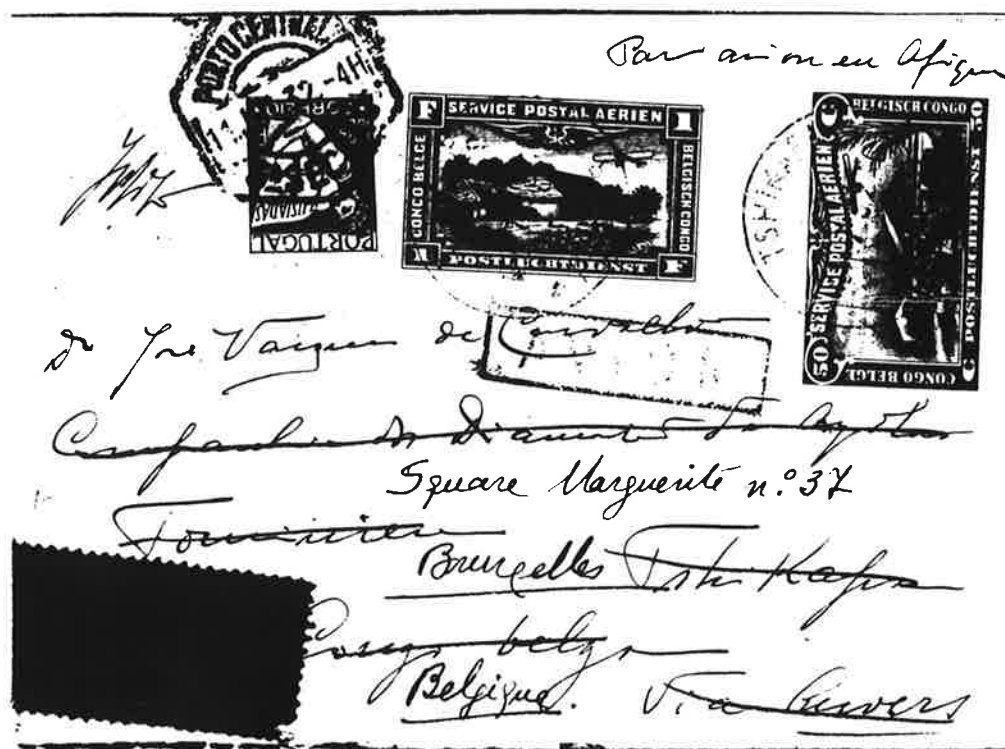 Par avion en Afrique
PORTO CENTRAL
32-4H
LUSIADAS
PORTUGAL
F SERVICE POSTAL AERIEN 1
CONGO BELGE
BELGISCH CONGO
1 POSTLUCHTDIENST F
TSHIKA
BELGISCH CONGO 50
SERVICE POSTAL AERIEN
POSTLUCHTDIENST
50 CONGO BELGE C
Dr José Vasques de Carvalho
Companhia dos Diamantes de Angola
Square Marguerite n.º 37
Bruxelles Tshikapa
Congo belge
Belgique. Via Anvers